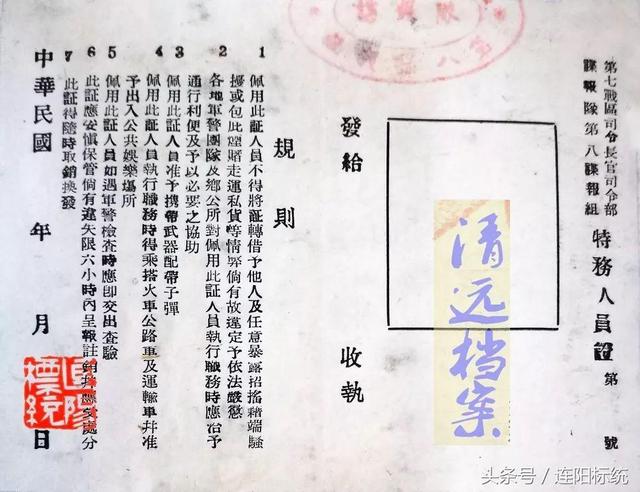 第七戰區司令長官司令部
諜報隊第八諜報組
特務人員證 第 號
清远档案
發給 收執
規則
1 佩用此証人員不得將証轉借予他人及任意暴露招搖藉端騷
擾或包庇 賭走運私貨等情弊倘有故違定予依法嚴懲
2 各地軍警團隊及鄉公所對佩用此証人員執行職務時應治予
通行利便及予以必要之協助
3 佩用此証人員准予携帶武器配帶子彈
4 佩用此証人員執行職務時得乘搭火車公路車及運輸車幷准
予出入公共娛樂場所
5 佩用此証人員如遇軍警檢查時應卽交出查驗
6 此証應安慎保管倘有遺失限六小時內呈報註銷幷應受處分
7 此証得隨時取銷換發
中華民國 年 月 日
头条号/连阳标统